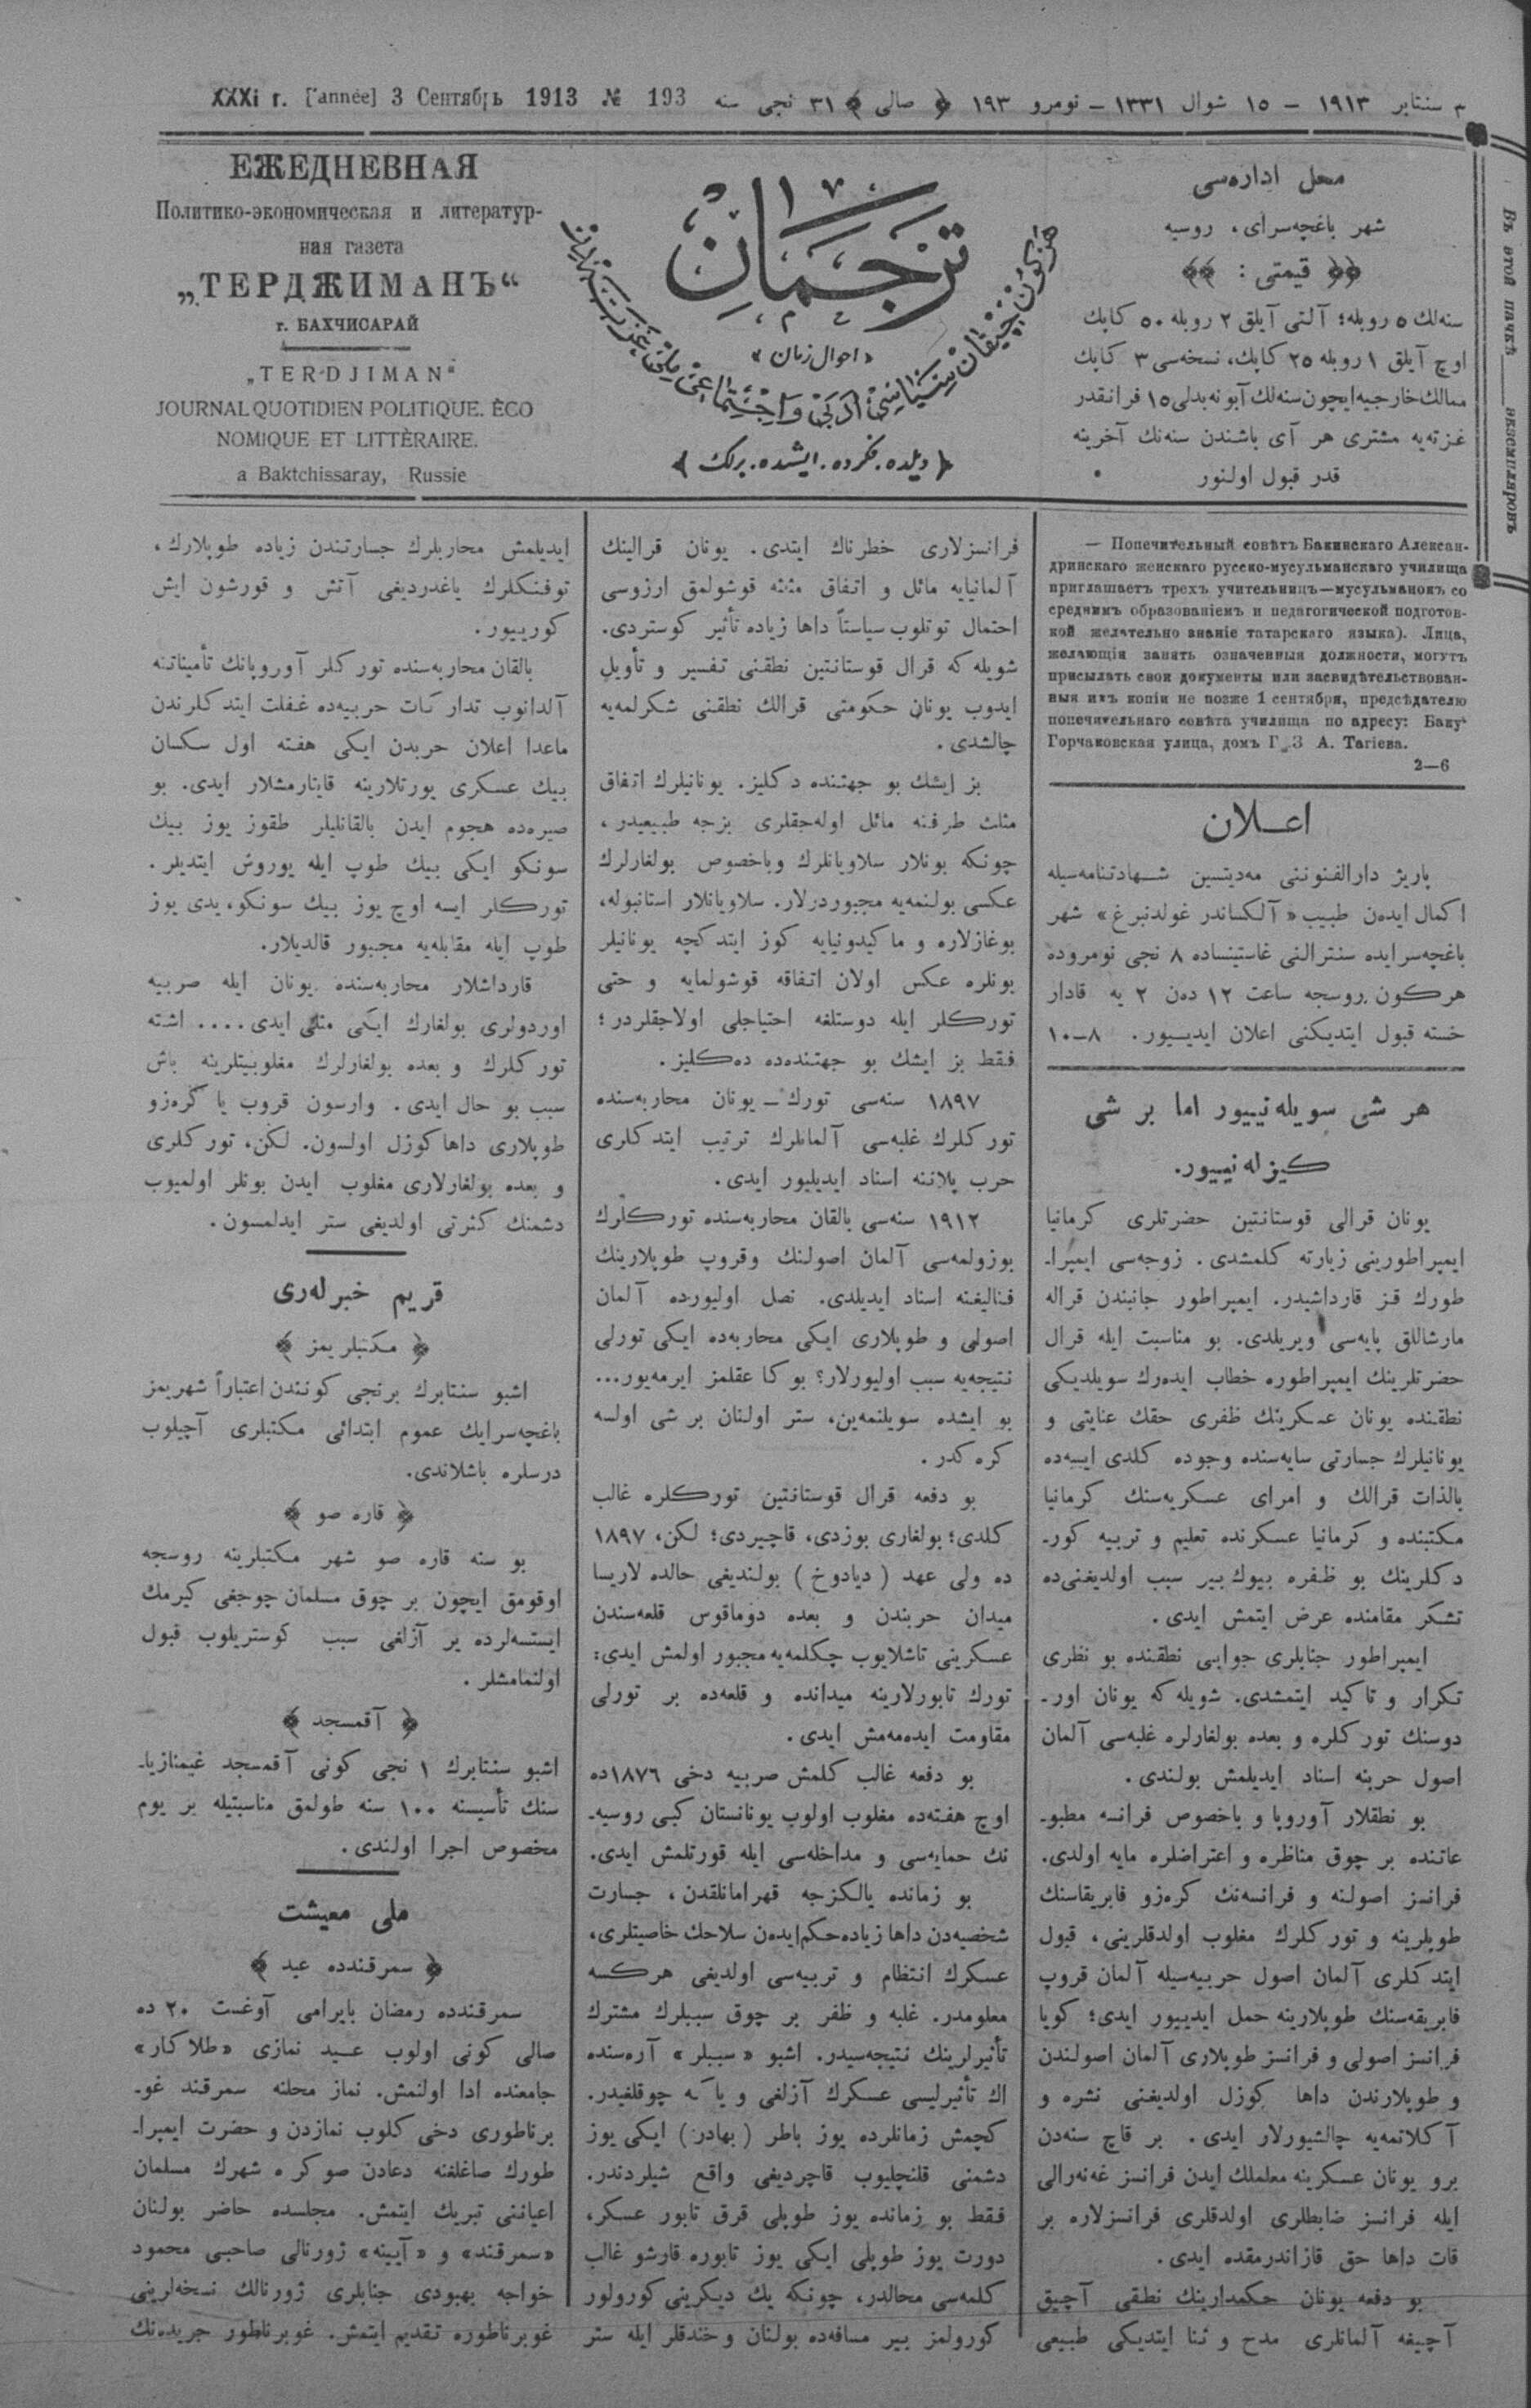 XXXI г. [année] 3 Сентябрь 1913 № 193 ٣ سنتابر ١٩١٣ – ١٥ شوال ١٣٣١ – نومرو ١٩٣ ﴿ صالى ﴾ ٣١ نجى سنه
ЕЖЕДНЕВНАЯ
Политико-экономическая и литератур-
ная газета
„ТЕРДЖИМАНЪ“
г. БАХЧИСАРАЙ
„TERDJIMAN“
JOURNAL QUOTIDIEN POLITIQUE. ÈCO
NOMIQUE ET LITTÈRAIRE.
a Baktchissaray, Russie
ترجمان
« احوال زمان »
﴿ ديلده. فكرده. ايشده. برلك ﴾
محل اداره‌سى
شهر باغچه‌سراى، روسيه
﴿﴿ قيمتى : ﴾﴾
سنه‌لك ٥ روبله؛ آلتى آيلق ٢ روبله ٥٠ كاپك
اوچ آيلق ١ روبله ٢٥ كاپك، نسخه‌سى ٣ كاپك
ممالك خارجيه ايچون سنه‌لك آبونه بدلى ١٥ فرانقدر
غزته‌يه مشترى هر آى باشندن سنه‌نك آخرينه
قدر قبول اولنور
Въ этой пачкѣ экземпляровъ
— Попечительный совѣтъ Бакинскаго Алексан-
дринскаго женскаго русско-мусульманскаго училища
приглашаетъ трехъ учительницъ—мусульманокъ со
среднимъ образованіемъ и педагогической подготов-
кой желательно знаніе татарскаго языка). Лица,
желающія занять означенныя должности, могутъ
присылать свои документы или засвидѣтельствован-
ныя ихъ копіи не позже 1 сентября, предсѣдателю
попечительнаго совѣта училища по адресу: Баку
Горчаковская улица, домъ Г. З А. Тагіева.
2—6
اعـــلان
پاريژ دارالفنوننى مه‌ديتسين شـهادتنامه‌سيله
اكمال ايده‌ن طبيب « آلكساندر غولدنبرغ » شهر
باغچه‌سرايده سنترالنى غاستينساده ٨ نجى نومروده
هركون روسجه ساعت ١٢ ده‌ن ٢ يه قادار
خسته قبول ايتديكنى اعلان ايديـيور. ٨–١٠
هر شى سويله‌نييور اما بر شى
كيزله‌نييور.
يونان قرالى قوستانتين حضرتلرى كرمانيا
ايمپراطورينى زيارته كلمشدى. زوجه‌سى ايمپرا-
طورك قز قارداشيدر. ايمپراطور جانبندن قراله
مارشاللق پايه‌سى ويريلدى. بو مناسبت ايله قرال
حضرتلرينك ايمپراطوره خطاب ايده‌رك سويلديكى
نطقنده يونان عسكرينك ظفرى حقك عنايتى و
يونانيلرك جسارتى سايه‌سنده وجوده كلدى ايسه‌ده
بالذات قرالك و امراى عسكريه‌سنك كرمانيا
مكتبنده و كرمانيا عسكرنده تعليم و تربيه كور-
دكلرينك بو ظفره بيوك بير سبب اولديغنى‌ده
تشكر مقامنده عرض ايتمش ايدى.
ايمپراطور جنابلرى جوابى نطقنده بو نظرى
تكرار و تاكيد ايتمشدى. شويله كه يونان اور-
دوسنك توركلره و بعده بولغارلره غلبه‌سى آلمان
اصول حربنه اسناد ايديلمش بولندى.
بو نطقلار آوروپا و باخصوص فرانسه مطبو-
عاتنده بر چوق مناظره و اعتراضلره مايه اولدى.
فرانسز اصولنه و فرانسه‌نك كره‌زو فابريقاسنك
طوپلرينه و توركلرك مغلوب اولدقلرينى، قبول
ايتدكلرى آلمان اصول حربيه‌سيله آلمان قروپ
فابريقه‌سنك طوپلارينه حمل ايدييور ايدى؛ كويا
فرانسز اصولى و فرانسز طوپلارى آلمان اصولندن
و طوپلارندن داها كوزل اولديغنى نشره و
آكلاتمه‌يه چالشيورلار ايدى. بر قاچ سنه‌دن
برو يونان عسكرينه معلملك ايدن فرانسز غه‌نه‌رالى
ايله فرانسز ضابطلرى اولدقلرى فرانسزلاره بر
قات داها حق قازاندرمقده ايدى.
بو دفعه يونان حكمدارينك نطقى آچيق
آچيغه آلمانلرى مدح و ثنا ايتديكى طبيعى
فرانسزلارى خطرناك ايتدى. يونان قرالينك
آلمانيايه مائل و اتفاق مثلثه قوشولمق ارزوسى
احتمال توتلوب سياستاً داها زياده تأثير كوستردى.
شويله كه قرال قوستانتين نطقنى تفسير و تأويل
ايدوب يونان حكومتى قرالك نطقنى شكرلمه‌يه
چالشدى.
بز ايشك بو جهتنده دكليز. يونانيلرك اتفاق
مثلث طرفنه مائل اوله‌جقلرى بزجه طبيعيدر،
چونكه بونلار سلاويانلرك وباخصوص بولغارلرك
عكسى بولنمه‌يه مجبوردرلار. سلاويانلار استانبوله،
بوغازلاره و ماكيدونيايه كوز ايتدكچه يونانيلر
بونلره عكس اولان اتفاقه قوشولمايه و حتى
توركلر ايله دوستلغه احتياجلى اولاجقلردر؛
فقط بز ايشك بو جهتنده‌ده ده‌كليز.
١٨٩٧ سنه‌سى تورك – يونان محاربه‌سنده
توركلرك غلبه‌سى آلمانلرك ترتيب ايتدكلرى
حرب پلاننه اسناد ايديليور ايدى.
١٩١٢ سنه‌سى بالقان محاربه‌سنده توركلرك
بوزولمه‌سى آلمان اصولنك وقروپ طوپلارينك
فنالیغنه اسناد ايديلدى. نصل اوليورده آلمان
اصولى و طوپلارى ايكى محاربه‌ده ايكى تورلى
نتيجه‌يه سبب اوليورلار؟ بوكا عقلمز ايرمه‌يور...
بو ايشده سويلنمه‌ين، ستر اولنان بر شى اولسه
كره‌كدر.
بو دفعه قرال قوستانتين توركلره غالب
كلدى؛ بولغارى بوزدى، قاچيردى؛ لكن، ١٨٩٧
ده ولى عهد ( ديادوخ ) بولنديغى حالده لاريسا
ميدان حربندن و بعده دوماقوس قلعه‌سندن
عسكرينى تاشلايوب چكلمه‌يه مجبور اولمش ايدى:
تورك تابورلارينه ميدانده و قلعه‌ده بر تورلى
مقاومت ايده‌مه‌مش ايدى.
بو دفعه غالب كلمش صربيه دخى ١٨٧٦ده
اوچ هفته‌ده مغلوب اولوب يونانستان كبى روسيه-
نك حمايه‌سى و مداخله‌سى ايله قورتلمش ايدى.
بو زمانده يالكزجه قهرامانلقدن، جسارت
شخصيه‌دن داها زياده حكم ايده‌ن سلاحك خاصيتلرى،
عسكرك انتظام و تربيه‌سى اولديغى هركسه
معلومدر. غلبه و ظفر بر چوق سببلرك مشترك
تأثيرلرينك نتيجه‌سيدر. اشبو « سببلر » آره‌سنده
اك تأثيرليسى عسكرك آزلغى و ياكه چوقلغيدر.
كچمش زمانلرده يوز باطر ( بهادر ) ايكى يوز
دشمنى قلنچليوب قاچرديغى واقع شيلردندر.
فقط بو زمانده يوز طوپلى قرق تابور عسكر،
دورت يوز طوپلى ايكى يوز تابوره قارشو غالب
كلمه‌سى محالدر، چونكه يك ديكرينى كورولور
كورولمز بير مسافه‌ده بولنان و خندقلر ايله ستر
ايديلمش محاربلرك جسارتندن زياده طوپلارك،
توفنكلرك ياغدرديغى آتش و قورشون ايش
كورييور.
بالقان محاربه‌سنده توركلر آوروپانك تأميناتنه
آلدانوب تداركات حربيه‌ده غفلت ايتدكلرندن
ماعدا اعلان حربدن ايكى هفته اول سكسان
بيك عسكرى يورتلارينه قايتارمشلار ايدى. بو
صيره‌ده هجوم ايدن بالقانليلر طقوز يوز بيك
سونكو ايكى بيك طوپ ايله يوروش ايتديلر.
توركلر ايسه اوچ يوز بيك سونكو، يدى يوز
طوپ ايله مقابله‌يه مجبور قالديلار.
قارداشلار محاربه‌سنده يونان ايله صربيه
اوردولرى بولغارك ايكى مثلى ايدى.... اشته
توركلرك و بعده بولغارلرك مغلوبيتلرينه باش
سبب بو حال ايدى. وارسون قروپ يا كره‌زو
طوپلارى داها كوزل اولسون. لكن، توركلرى
و بعده بولغارلارى مغلوب ايدن بونلر اولميوب
دشمنك كثرتى اولديغى ستر ايدلمسون.
قريم خبرله‌رى
﴿ مكتبلريمز ﴾
اشبو سنتابرك برنجى كونندن اعتباراً شهريمز
باغچه‌سرايك عموم ابتدائى مكتبلرى آچيلوب
درسلره باشلاندى.
﴿ قاره صو ﴾
بو سنه قاره صو شهر مكتبلرينه روسجه
اوقومق ايچون بر چوق مسلمان چوجغى كيرمك
ايستسه‌لرده ير آزلغى سبب كوستريلوب قبول
اولنمامشلر.
﴿ آقمسجد ﴾
اشبو سنتابرك ١ نجى كونى آقمسجد غيمنازيا-
سنك تأسيسنه ١٠٠ سنه طولمق مناسبتيله بر يوم
مخصوص اجرا اولندى.
ملى معيشت
﴿ سمرقندده عيد ﴾
سمرقندده رمضان بايرامى آوغست ٢٠ ده
صالى كونى اولوب عـيد نمازى « طلاكار »
جامعنده ادا اولنمش. نماز محلنه سمرقند غو-
برناطورى دخى كلوب نمازدن و حضرت ايمپرا-
طورك صاغلغنه دعادن صوكره شهرك مسلمان
اعياننى تبريك ايتمش. مجلسده حاضر بولنان
« سمرقند » و « آيينه » ژورنالى صاحبى محمود
خواجه بهبودى جنابلرى ژورنالك نسخه‌لرينى
غوبرناطوره تقديم ايتمش. غوبرناطور جريده‌نك